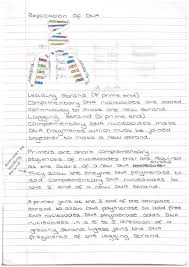 Replication Of DNA
Leading Strand (3 prime end)
Complimentary DNA nucleotides are added
continuously to make one new strand.
Lagging Strand (5 prime end)
Complementary DNA nucleotides make
DNA fragments which must be joined
together to make a new strand.
Primers are short complementary
sequences of nucleotides that are required
at the start of a new strand.
They allow the enzyme DNA polymerase to
add complementary DNA nucleotides to
the 3' end of a new DNA strand.
A primer joins at the 3' end of the template
strand to allow DNA polymerase to add free
DNA nucleotides. DNA polymerase adds DNA
nucleotides in a 5' to 3' direction of
growing strand. Ligase joins the DNA
fragments of the lagging strand.